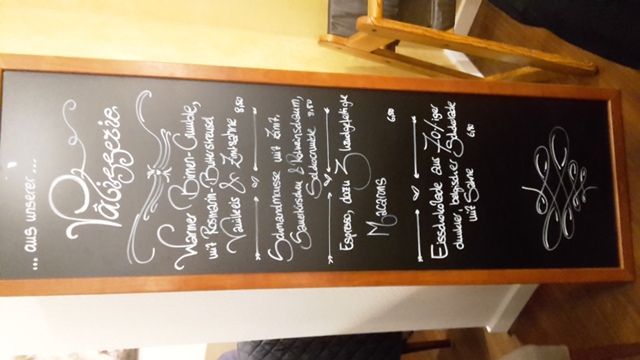 ... aus unserer ...
Pâtisserie
Warmer Birnen-Crumble,
mit Rosmarin-Butterstreusel
Vanilleeis & Zimtsahne 8,80
Schmandmousse mit Zimt,
Sauerkirschen &
Espresso, dazu 3 handgefertigte
Macarons 6,80
Eisschokolade aus 70%iger
dunkler, belgischer Schokolade
mit Sahne 6,90